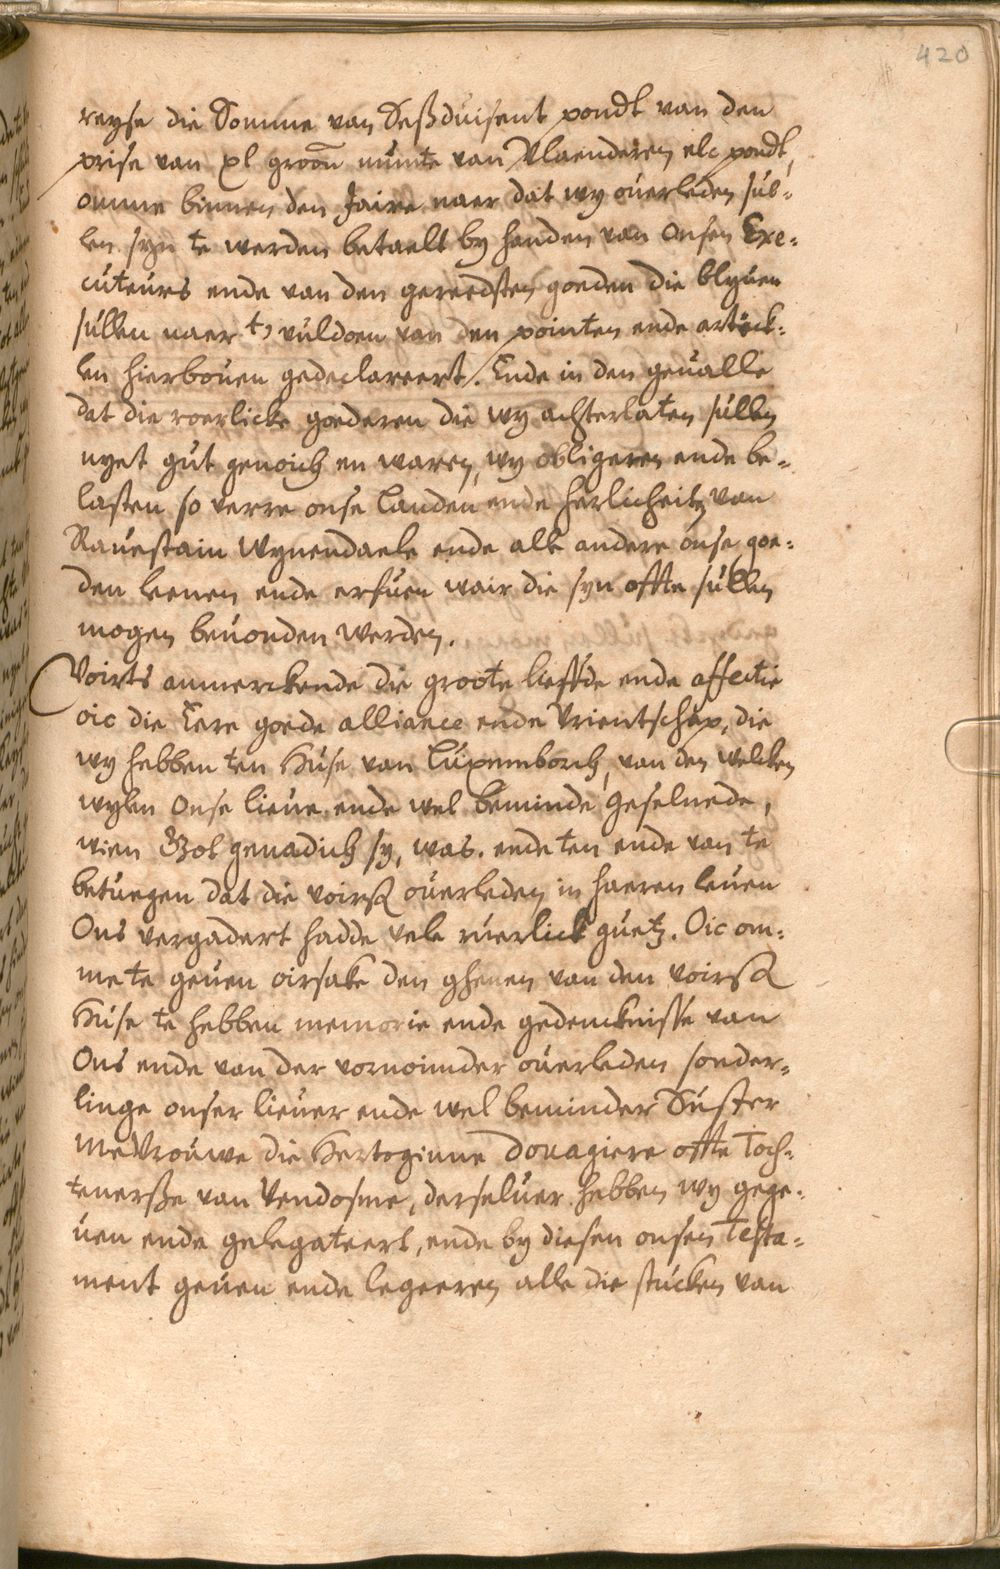 420
reyse die Somme van Seßduisent pondt van den
prise van xl grooñ munte van Vlaenderen elc pondt,
omme binnen den Jaire naer dat wy ouerleden sul-
len syn te werden betaelt by handen van onsen Exe-
cuteurs ende van den gereedsten goeden die blyuen
sullen naer t, vuldoen van den pointen ende artick-
len hierbouen gedeclareert. Ende in den geualle
dat die roerlicke goederen die wy achterlaten sullen
nyet gut genoich en waren, wy obligeren ende be-
lasten so verre onse Landen ende herlicheitz van
Rauestain Wynendaele ende alle andere onse goe-
den leenen ende erfuen wair die syn offte sullen
mogen beuonden werden.
Voirts anmerckende die groote lieffde ende affectie
oic die Eere goede alliance ende Vrientschap, die
wy hebben ten Huse van Luxemborch, van den welcken
wylen onse lieue ende wel beminde geselnede,
wien Got genadich sy, was. ende ten ende van te
betuegen dat die voirß ouerleden in haeren leuen
Ons vergadert hadde vele ruerlick guetz. Oic om-
me te geuen oirsake den ghenen van den voirß
Huse te hebben memorie ende gedencknisse van
Ons ende van der vornoimder ouerleden sonder-
linge onser lieuer ende wel beminder Suster
me Vrouwe die Hertoginne Douagiere offte Toch-
tenerße van Vendosme, derseluer hebben wy gege-
uen ende gelegateert, ende by diesen onsen Testa-
ment geuen ende legeeren alle die stucken van